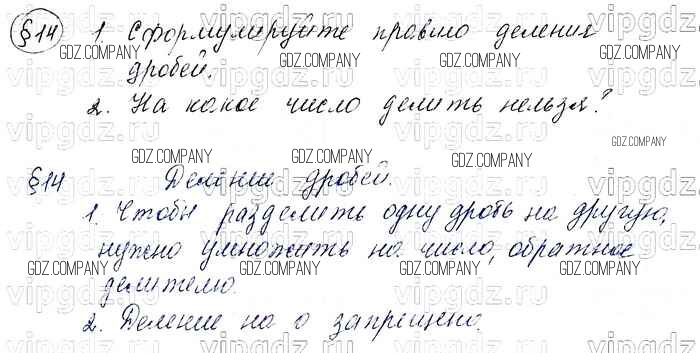 §14 1. Сформулируйте правило деления
дробей.
2. На какое число делить нельзя?
§14 Деление дробей.
1. Чтобы разделить одну дробь на другую,
нужно умножить на число, обратное
делителю.
2. Деление на 0 запрещено.